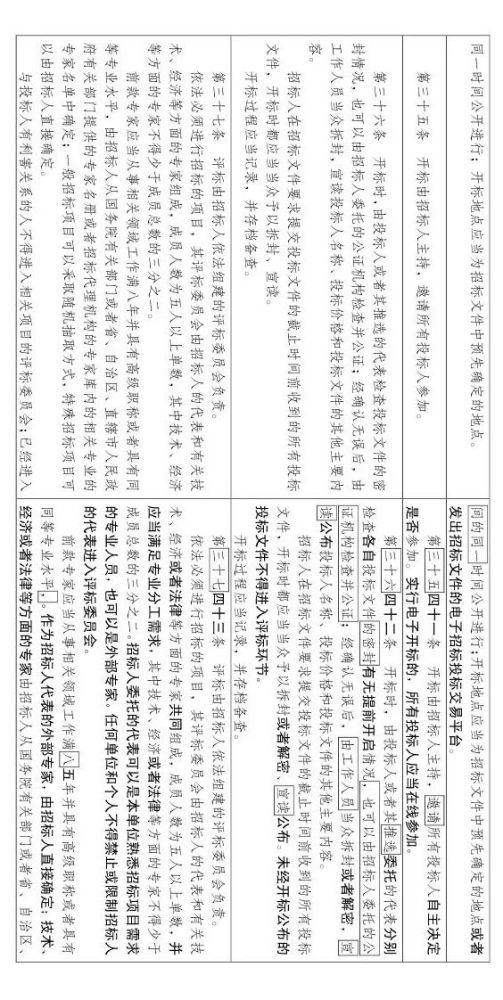 同一时间公开进行；开标地点应当为招标文件中预先确定的地点。
间的同一时间公开进行；开标地点应当为招标文件中预先确定的地点或者
发出招标文件的电子招标投标交易平台。
第三十五条 开标由招标人主持，邀请所有投标人参加。
第三十五四十一条 开标由招标人主持，邀请所有投标人自主决定
是否参加。实行电子开标的，所有投标人应当在线参加。
第三十六条 开标时，由投标人或者其推选的代表检查投标文件的密
封情况，也可以由招标人委托的公证机构检查并公证；经确认无误后，由
工作人员当众拆封，宣读投标人名称、投标价格和投标文件的其他主要内
容。
招标人在招标文件要求提交投标文件的截止时间前收到的所有投标
文件，开标时都应当当众予以拆封、宣读。
开标过程应当记录，并存档备查。
第三十六四十二条 开标时，由投标人或者其推选委托的代表分别
检查各自投标文件的密封有无提前开启情况，也可以由招标人委托的公
证机构检查并公证；经确认无误后，由工作人员当众拆封或者解密，宣
读公布投标人名称、投标价格和投标文件的其他主要内容。
招标人在招标文件要求提交投标文件的截止时间前收到的所有投标
文件，开标时都应当当众予以拆封或者解密、宣读公布。未经开标公布的
投标文件不得进入评标环节。
开标过程应当记录，并存档备查。
第三十七条 评标由招标人依法组建的评标委员会负责。
依法必须进行招标的项目，其评标委员会由招标人的代表和有关技
术、经济等方面的专家组成，成员人数为五人以上单数，其中技术、经济
等方面的专家不得少于成员总数的三分之二。
前款专家应当从事相关领域工作满八年并具有高级职称或者具有同
等专业水平，由招标人从国务院有关部门或者省、自治区、直辖市人民政
府有关部门提供的专家名册或者招标代理机构的专家库内的相关专业的
专家名单中确定；一般招标项目可以采取随机抽取方式，特殊招标项目可
以由招标人直接确定。
与投标人有利害关系的人不得进入相关项目的评标委员会；已经进入
第三十七四十三条 评标由招标人依法组建的评标委员会负责。
依法必须进行招标的项目，其评标委员会由招标人的代表和有关技
术、经济或者法律等方面的专家共同组成，成员人数为五人以上单数，并
应当满足专业分工需求，其中技术、经济或者法律等方面的专家不得少于
成员总数的三分之二。招标人委托的代表可以是本单位熟悉招标项目需求
的专业人员，也可以是外部专家。任何单位和个人不得禁止或限制招标人
的代表进入评标委员会。
前款专家应当从事相关领域工作满八五年并具有高级职称或者具有
同等专业水平，。作为招标人代表的外部专家，由招标人直接确定；技术、
经济或者法律等方面的专家由招标人从国务院有关部门或者省、自治区、